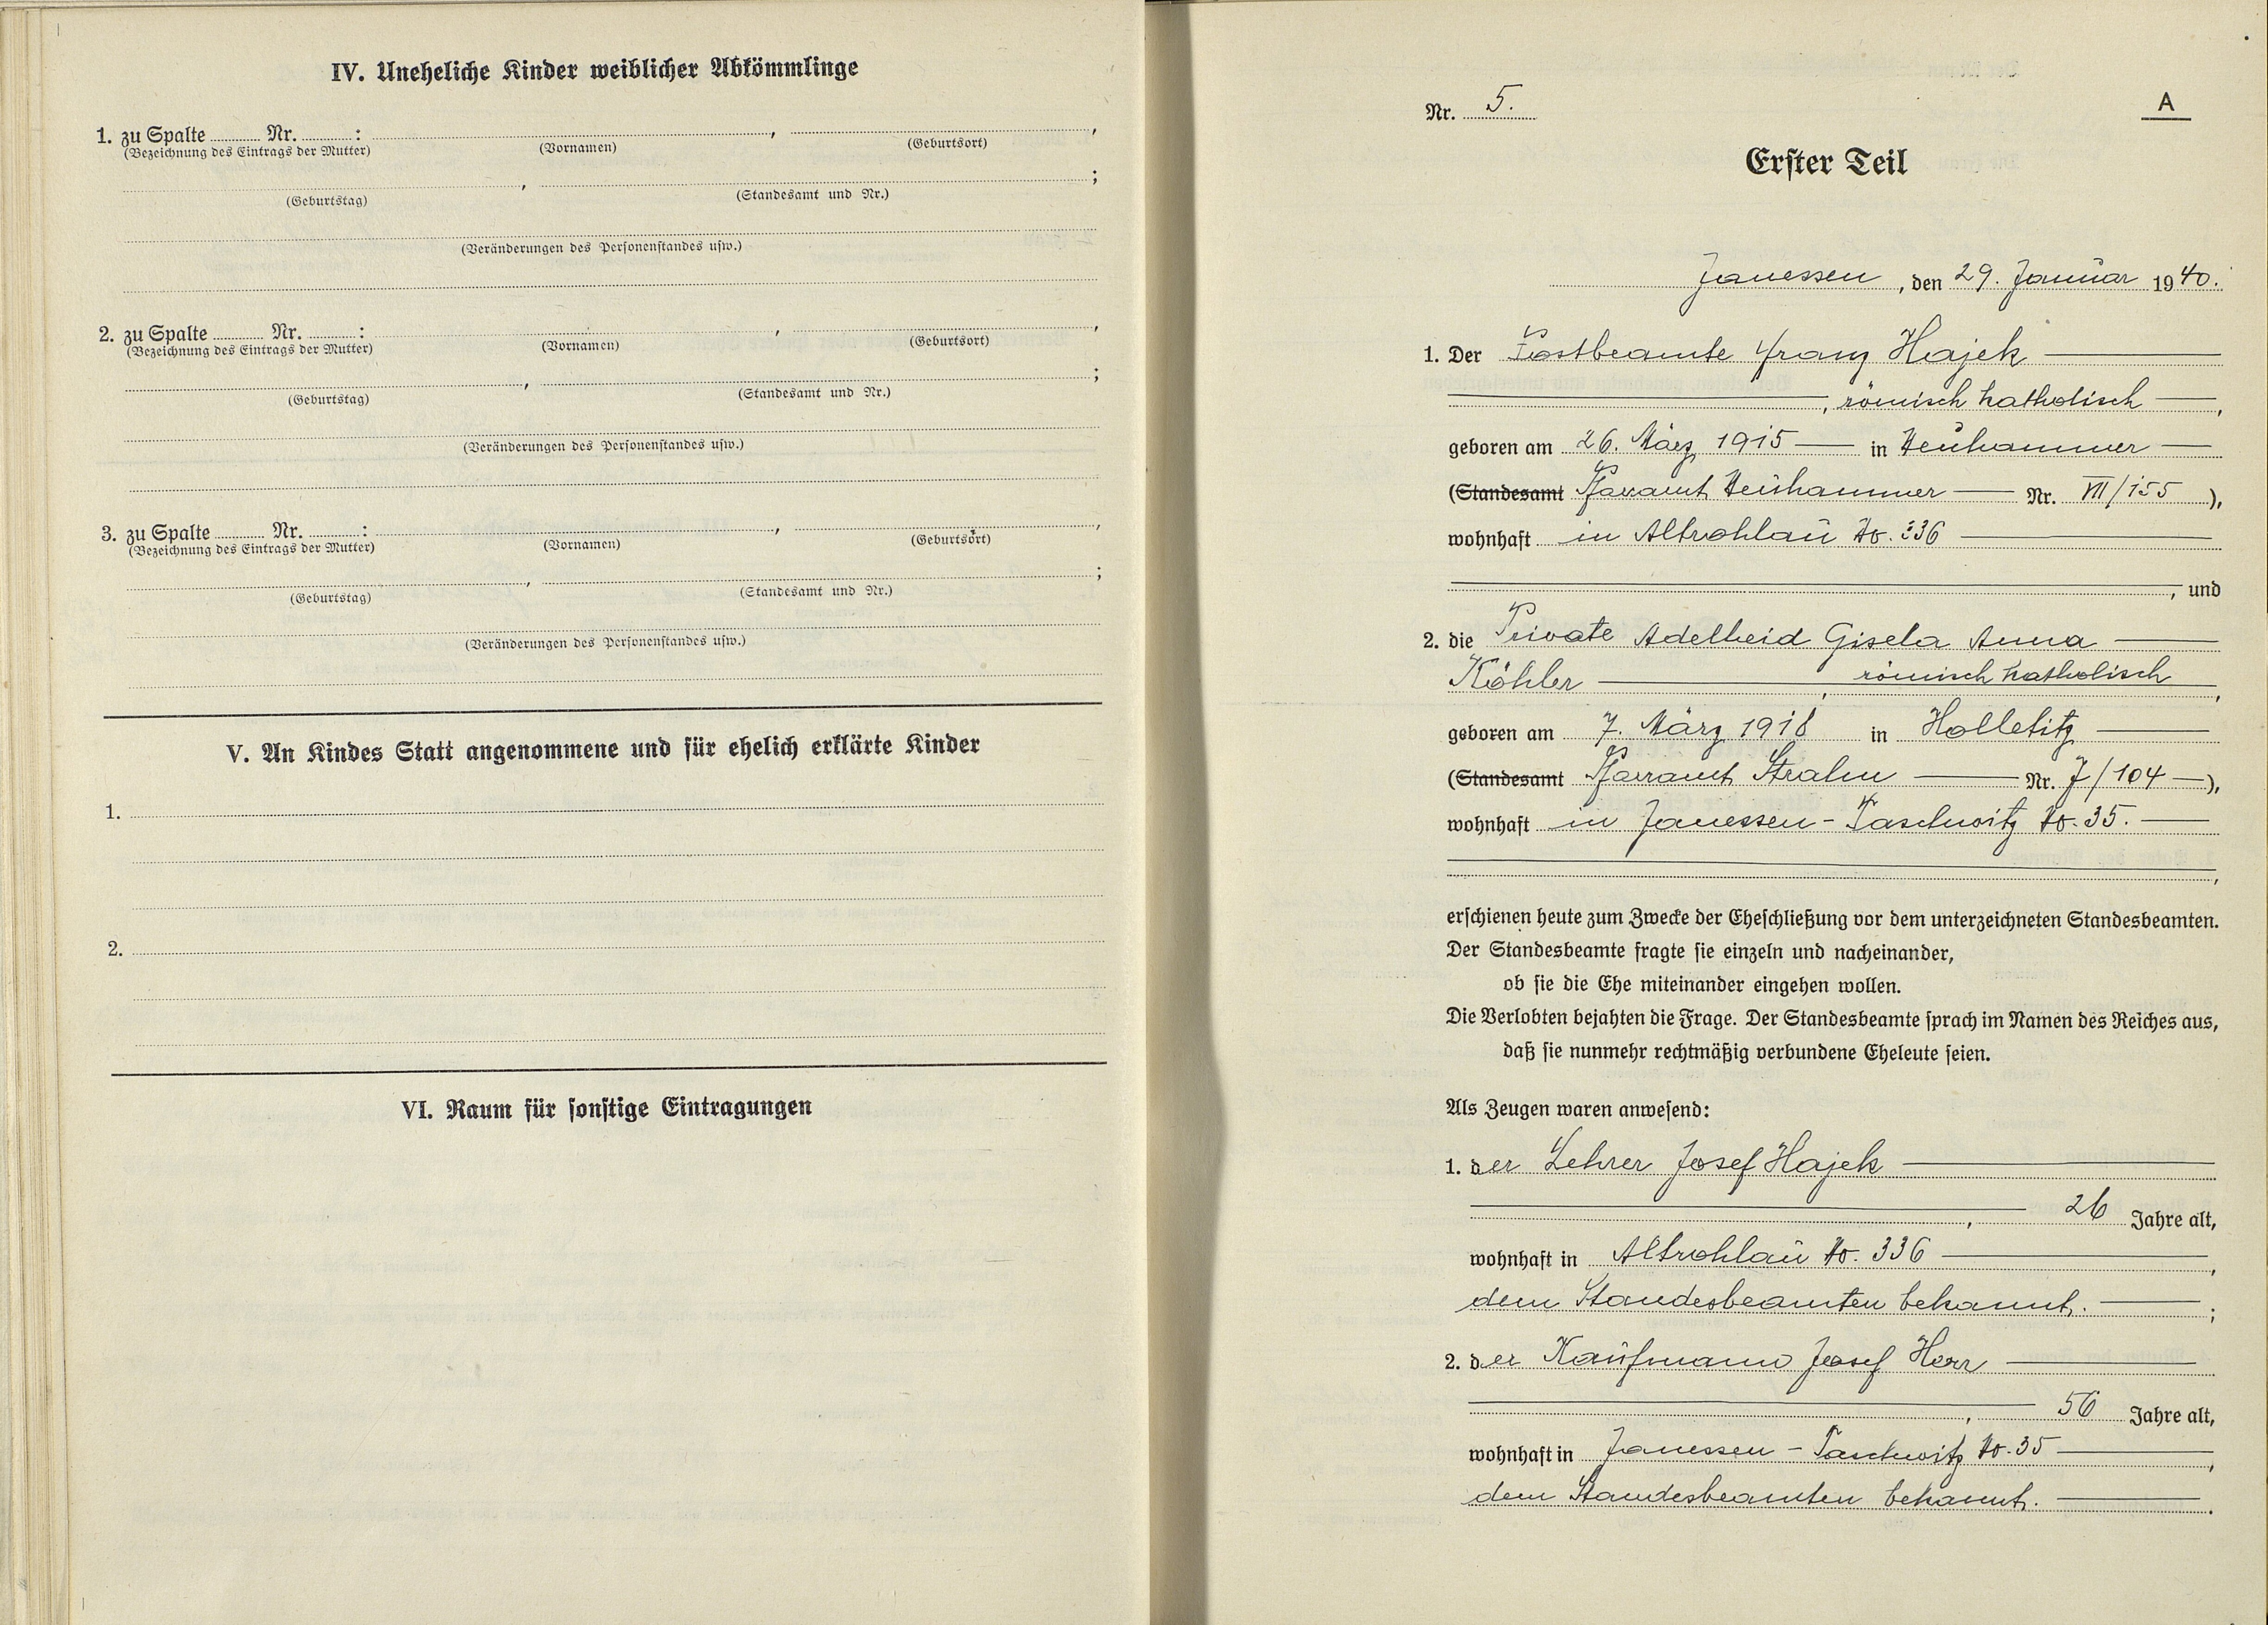 IV. Uneheliche Kinder weiblicher Abkömmlinge
1. zu Spalte ........ Nr. ........ : ........ , ........ ,
(Bezeichnung des Eintrags der Mutter) (Vornamen) (Geburtsort)
........ , ........ ;
(Geburtstag) (Standesamt und Nr.)
(Veränderungen des Personenstandes usw.)
2. zu Spalte ........ Nr. ........ : ........ , ........ ,
(Bezeichnung des Eintrags der Mutter) (Vornamen) (Geburtsort)
........ , ........ ;
(Geburtstag) (Standesamt und Nr.)
(Veränderungen des Personenstandes usw.)
3. zu Spalte ........ Nr. ........ : ........ , ........ ,
(Bezeichnung des Eintrags der Mutter) (Vornamen) (Geburtsort)
........ , ........ ;
(Geburtstag) (Standesamt und Nr.)
(Veränderungen des Personenstandes usw.)
V. An Kindes Statt angenommene und für ehelich erklärte Kinder
1.
2.
VI. Raum für sonstige Eintragungen
Nr. 5. A
Erster Teil
Janessen, den 29. Januar 1940.
1. Der Postbeamte Franz Hajek
, römisch katholisch,
geboren am 26. März 1915 in Neuhammer
(Standesamt Pfarramt Neuhammer Nr. VII/155),
wohnhaft in Altrohlau No. 336
, und
2. die Private Adelheid Gisela Anna
Köhler, römisch katholisch,
geboren am 7. März 1918 in Holletitz
(Standesamt Pfarramt Strahn Nr. 7/104),
wohnhaft in Janessen-Taschwitz No. 35.
,
erschienen heute zum Zwecke der Eheschließung vor dem unterzeichneten Standesbeamten.
Der Standesbeamte fragte sie einzeln und nacheinander,
ob sie die Ehe miteinander eingehen wollen.
Die Verlobten bejahten die Frage. Der Standesbeamte sprach im Namen des Reiches aus,
daß sie nunmehr rechtmäßig verbundene Eheleute seien.
Als Zeugen waren anwesend:
1. der Lehrer Josef Hajek
, 26 Jahre alt,
wohnhaft in Altrohlau No. 336,
dem Standesbeamten bekannt. ;
2. der Kaufmann Josef Herr
, 56 Jahre alt,
wohnhaft in Janessen-Taschwitz No. 35,
dem Standesbeamten bekannt. .